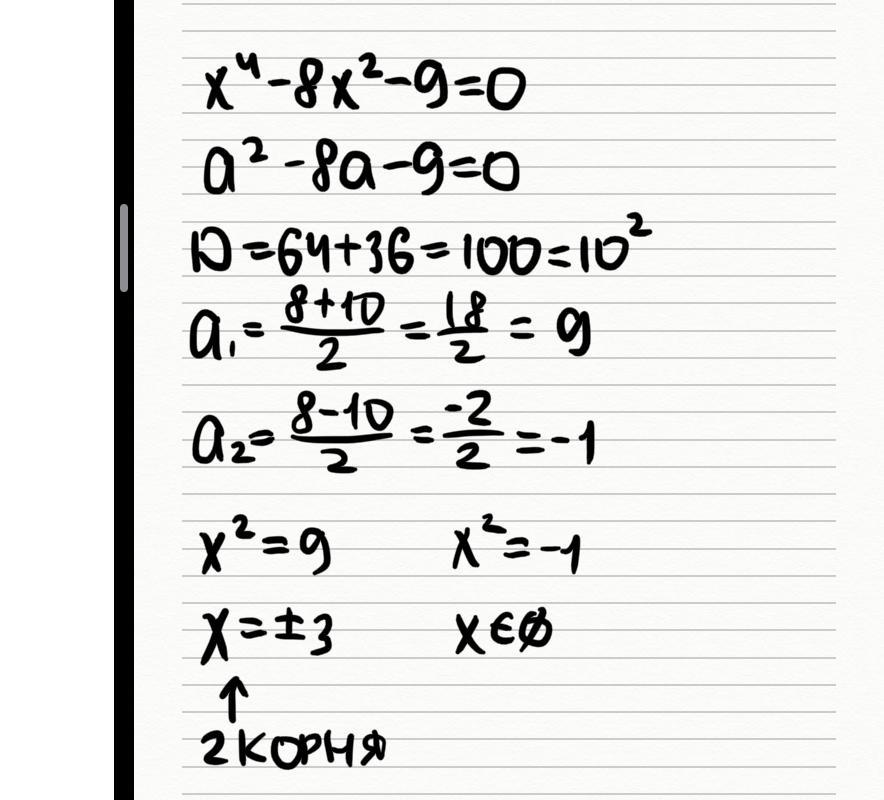 x⁴-8x²-9=0
a²-8a-9=0
D=64+36=100=10²
a₁=(8+10)/2=18/2=9
a₂=(8-10)/2=-2/2=-1
x²=9 x²=-1
x=±3 x∈∅
↑
2 КОРНЯ